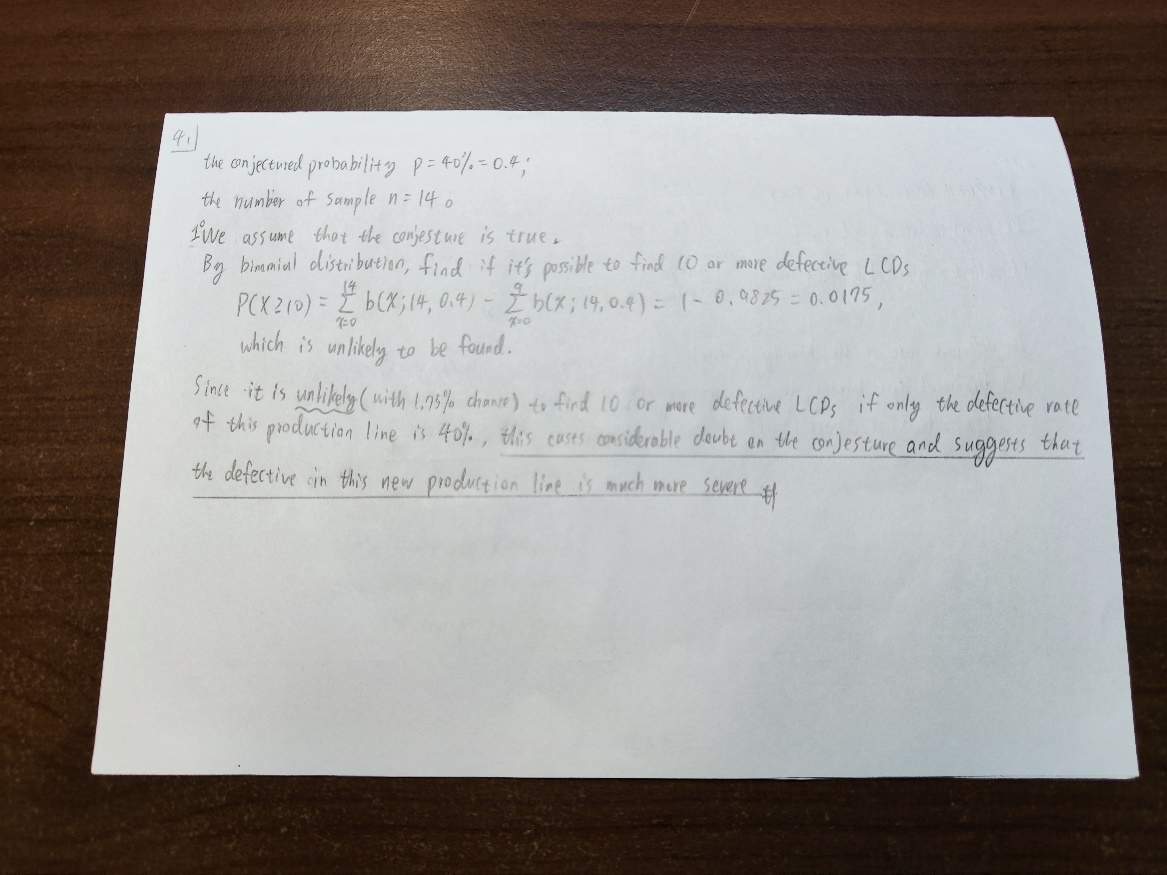 4.
the conjectured probability p = 40% = 0.4;
the number of sample n = 14。
1° We assume that the conjesture is true.
By binomial distribution, find if it's possible to find 10 or more defective LCDs
P(X≥10) = Σ_{x=0}^{14} b(x; 14, 0.4) - Σ_{x=0}^{9} b(x; 14, 0.4) = 1 - 0.9825 = 0.0175,
which is unlikely to be found.
Since it is unlikely (with 1.75% chance) to find 10 or more defective LCDs if only the defective rate
of this production line is 40%, this casts considerable doubt on the conjesture and suggests that
the defective in this new production line is much more severe #